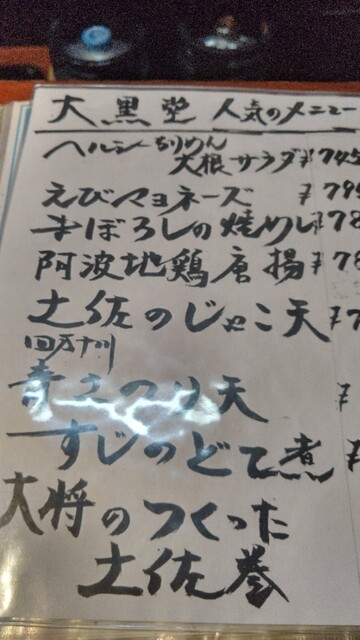 大黒堂 人気のメニュー
ヘルシーちりめん
大根サラダ ¥745
えびマヨネーズ ¥79
まぼろしの焼めし ¥78
阿波地鶏唐揚 ¥78
土佐のじゃこ天 ¥7
四万十川
青さのり天 ¥
すじのどて煮 ¥
大将のつくった
土佐巻